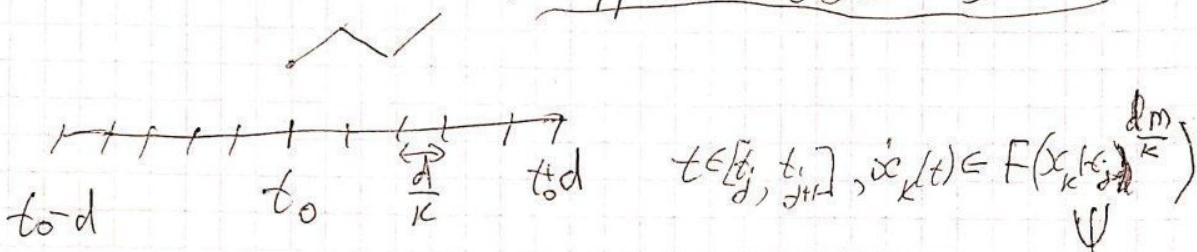 t₀-d
t₀
d/k
t₀+d
t∈[t_j, t_{j+1}], ẋ_k(t) ∈ F(x_k(t_j)^{dm/k})